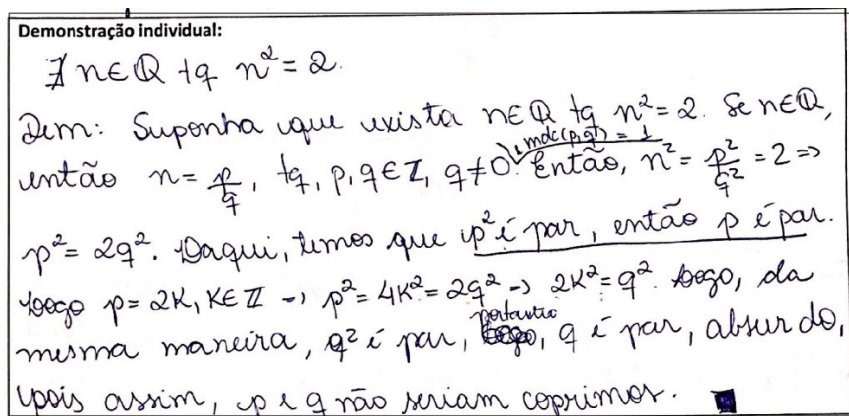 Demonstração individual:
∄ n∈ℚ tq n² = 2.
Dem: Suponha que exista n∈ℚ tq n² = 2. Se n∈ℚ,
então n = p/q, tq, p,q∈ℤ, q≠0, mdc(p,q) = 1. Então, n² = p²/q² = 2 =>
p² = 2q². Daqui, temos que p² é par, então p é par.
Logo p = 2K, K∈ℤ -> p² = 4K² = 2q² -> 2K² = q². Logo, da
mesma maneira, q² é par, portanto, q é par, absurdo,
pois assim, p e q não seriam coprimos. ■